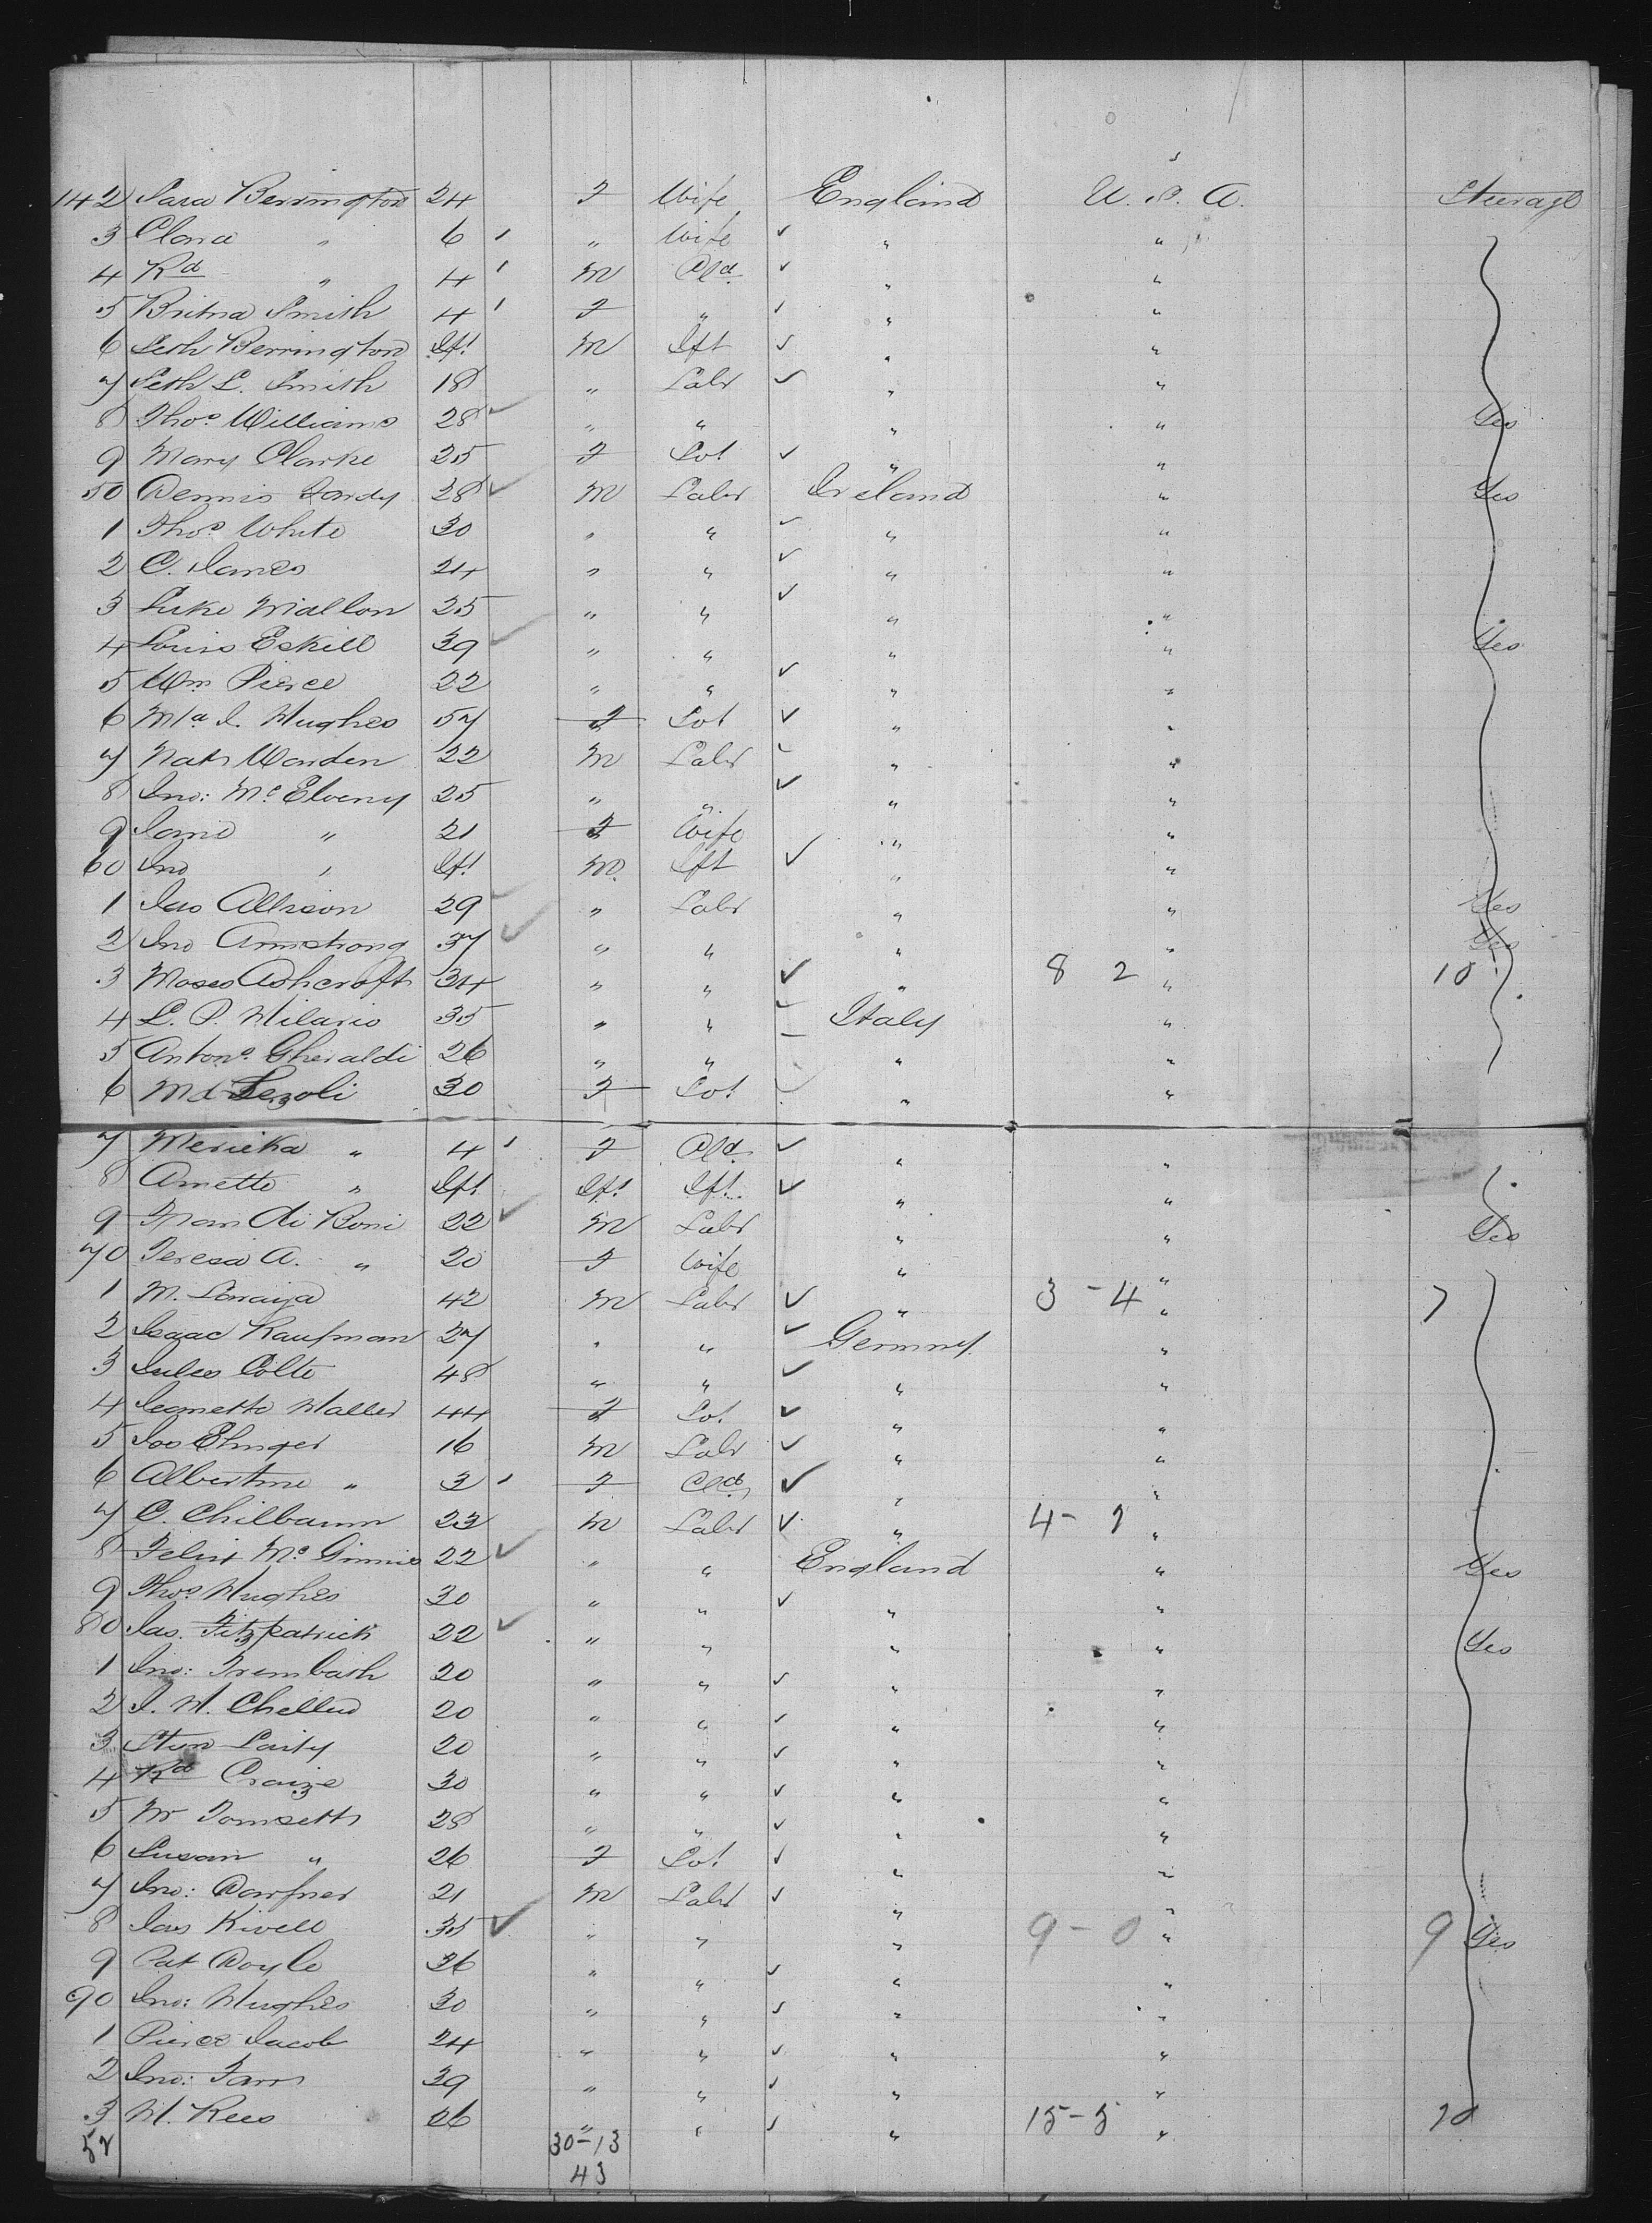 142 Sara Berrington 24 F Wife England U.S.A. Steerage
3 Clara " 6 ' " Wife ✓ " "
4 Rd " 4 ' M Cld ✓ " "
5 Smith 4 ' F " ✓ " "
6 Seth Berrington Ift M Ift ✓ " "
7 Seth L. Smith 18 " Labr ✓ " "
8 Thos Williams 28 ✓ " " " " Yes
9 Mary Clarke 25 F Sot ✓ " "
50 Dennis 28 ✓ M Labr Ireland " Yes
1 Thos White 30 " " ✓ " "
2 C. Janes 24 " " ✓ " "
3 Luke Mallon 25 " " ✓ " "
4 Louis Eskill 39 ✓ " " " " Yes
5 Wm Pierce 22 " " ✓ " "
6 Ma J. Hughes 57 F Sot ✓ " "
7 Nath Warden 22 M Labr ✓ " "
8 Jno: McElveny 25 " " ✓ " "
9 Jane " 21 F Wife " "
60 Jno " Ift M Ift ✓ " "
1 Jas Allison 29 ✓ " Labr " " Yes
2 Jno Armstrong 37 ✓ " " " " Yes
3 Moses Ashcroft 34 " " ✓ " 8 2 " 10
4 L. P. Hilario 35 " " ✓ Italy "
5 Antono Gheraldi 26 " " " "
6 Lezoli 30 F Sot ✓ " "
7 Mericka " 4 ' F Cld ✓ " "
8 Anette " Ift Ift Ift ✓ " "
9 di Boni 22 ✓ M Labr " " Yes
70 Teresa A. " 20 F Wife " "
1 M. 42 M Labr ✓ " 3 - 4 " 7
2 Isaac Kaufman 27 " " ✓ Germny "
3 Jules Colte 48 " " ✓ " "
4 Jeanette Waller 44 F Sot ✓ " "
5 Jos Ehnger 16 M Labr ✓ " "
6 Albertine " 3 ' F Cld ✓ " "
7 C. Chilbaum 23 M Labr ✓ " 4 - "
8 Felix McGinnis 22 ✓ " " England " Yes
9 Thos Hughes 30 " " ✓ " "
80 Jas. Fitzpatrick 22 ✓ " " " " Yes
1 Jno: Trembath 20 " " ✓ " "
2 J. H. 20 " " ✓ " "
3 Laity 20 " " ✓ " "
4 Rd Craize 30 " " ✓ " "
5 Wr Tomsett 28 " " ✓ " "
6 Susan " 26 F Sot ✓ " "
7 Jno: 21 M Labr ✓ " "
8 Jas Kivell 35 ✓ " " " 9 - 0 " 9 Yes
9 Pat Doyle 36 " " ✓ " "
90 Jno: Hughes 30 " " ✓ " "
1 Pierce Jacob 24 " " ✓ " "
2 Jno: Farr 39 " " ✓ " "
3 W. Rees 26 " " ✓ " 15 - 5 " 20
52 30-13
43